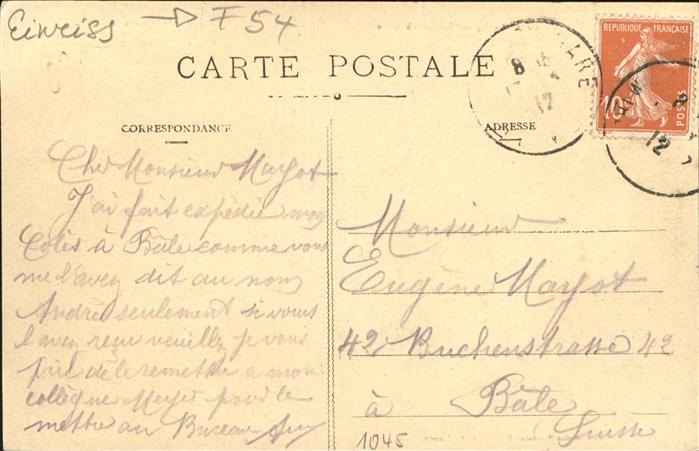 Eiweiss → F54
CARTE POSTALE
CORRESPONDANCE
ADRESSE
RÉPUBLIQUE FRANÇAISE
10
POSTES
GARE
8
12
12
Cher Monsieur Mayot
J'ai fait expédié mon
Colis à Bâle comme vous
me l'avez dit au nom
André seulement si vous
l'avez reçu veuillez je vous
prie de le remettre a mon
collègue Meyer pour le
mettre au Bureau
Monsieur
Eugène Mayot
42 Buchenstrasse 42
à Bâle
Suisse
1045